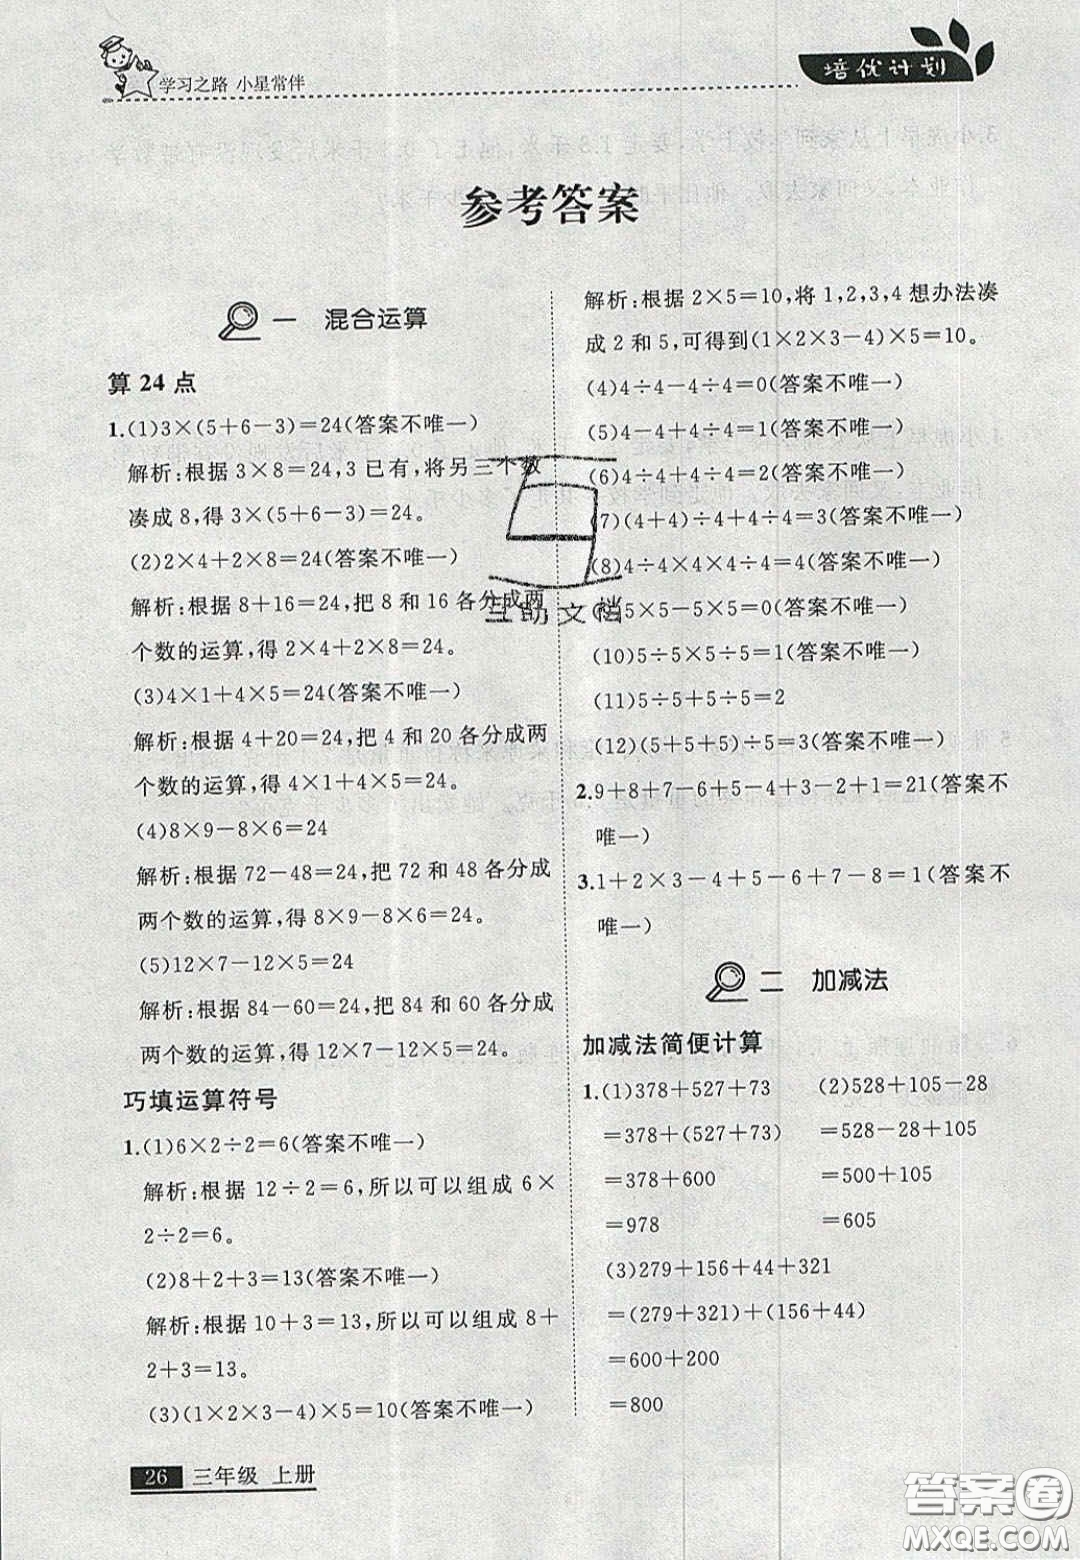 学习之路 小星常伴
培优计划
参考答案
一 混合运算
算24点
1.(1)3×(5+6-3)=24(答案不唯一)
解析:根据3×8=24,3已有,将另三个数
凑成8,得3×(5+6-3)=24。
(2)2×4+2×8=24(答案不唯一)
解析:根据8+16=24,把8和16各分成两
个数的运算,得2×4+2×8=24。
(3)4×1+4×5=24(答案不唯一)
解析:根据4+20=24,把4和20各分成两
个数的运算,得4×1+4×5=24。
(4)8×9-8×6=24
解析:根据72-48=24,把72和48各分成
两个数的运算,得8×9-8×6=24。
(5)12×7-12×5=24
解析:根据84-60=24,把84和60各分成
两个数的运算,得12×7-12×5=24。
巧填运算符号
1.(1)6×2÷2=6(答案不唯一)
解析:根据12÷2=6,所以可以组成6×
2÷2=6。
(2)8+2+3=13(答案不唯一)
解析:根据10+3=13,所以可以组成8+
2+3=13。
(3)(1×2×3-4)×5=10(答案不唯一)
解析:根据2×5=10,将1,2,3,4想办法凑
成2和5,可得到(1×2×3-4)×5=10。
(4)4÷4-4÷4=0(答案不唯一)
(5)4-4+4÷4=1(答案不唯一)
(6)4÷4+4÷4=2(答案不唯一)
(7)(4+4)÷4+4÷4=3(答案不唯一)
(8)4÷4×4×4÷4=4(答案不唯一)
5×5-5×5=0(答案不唯一)
(10)5÷5×5÷5=1(答案不唯一)
(11)5÷5+5÷5=2
(12)(5+5+5)÷5=3(答案不唯一)
2.9+8+7-6+5-4+3-2+1=21(答案不
唯一)
3.1+2×3-4+5-6+7-8=1(答案不
唯一)
二 加减法
加减法简便计算
1.(1)378+527+73
=378+(527+73)
=378+600
=978
(2)528+105-28
=528-28+105
=500+105
=605
(3)279+156+44+321
=(279+321)+(156+44)
=600+200
=800
互助文档
26 三年级 上册
答案圈
MXQE.COM